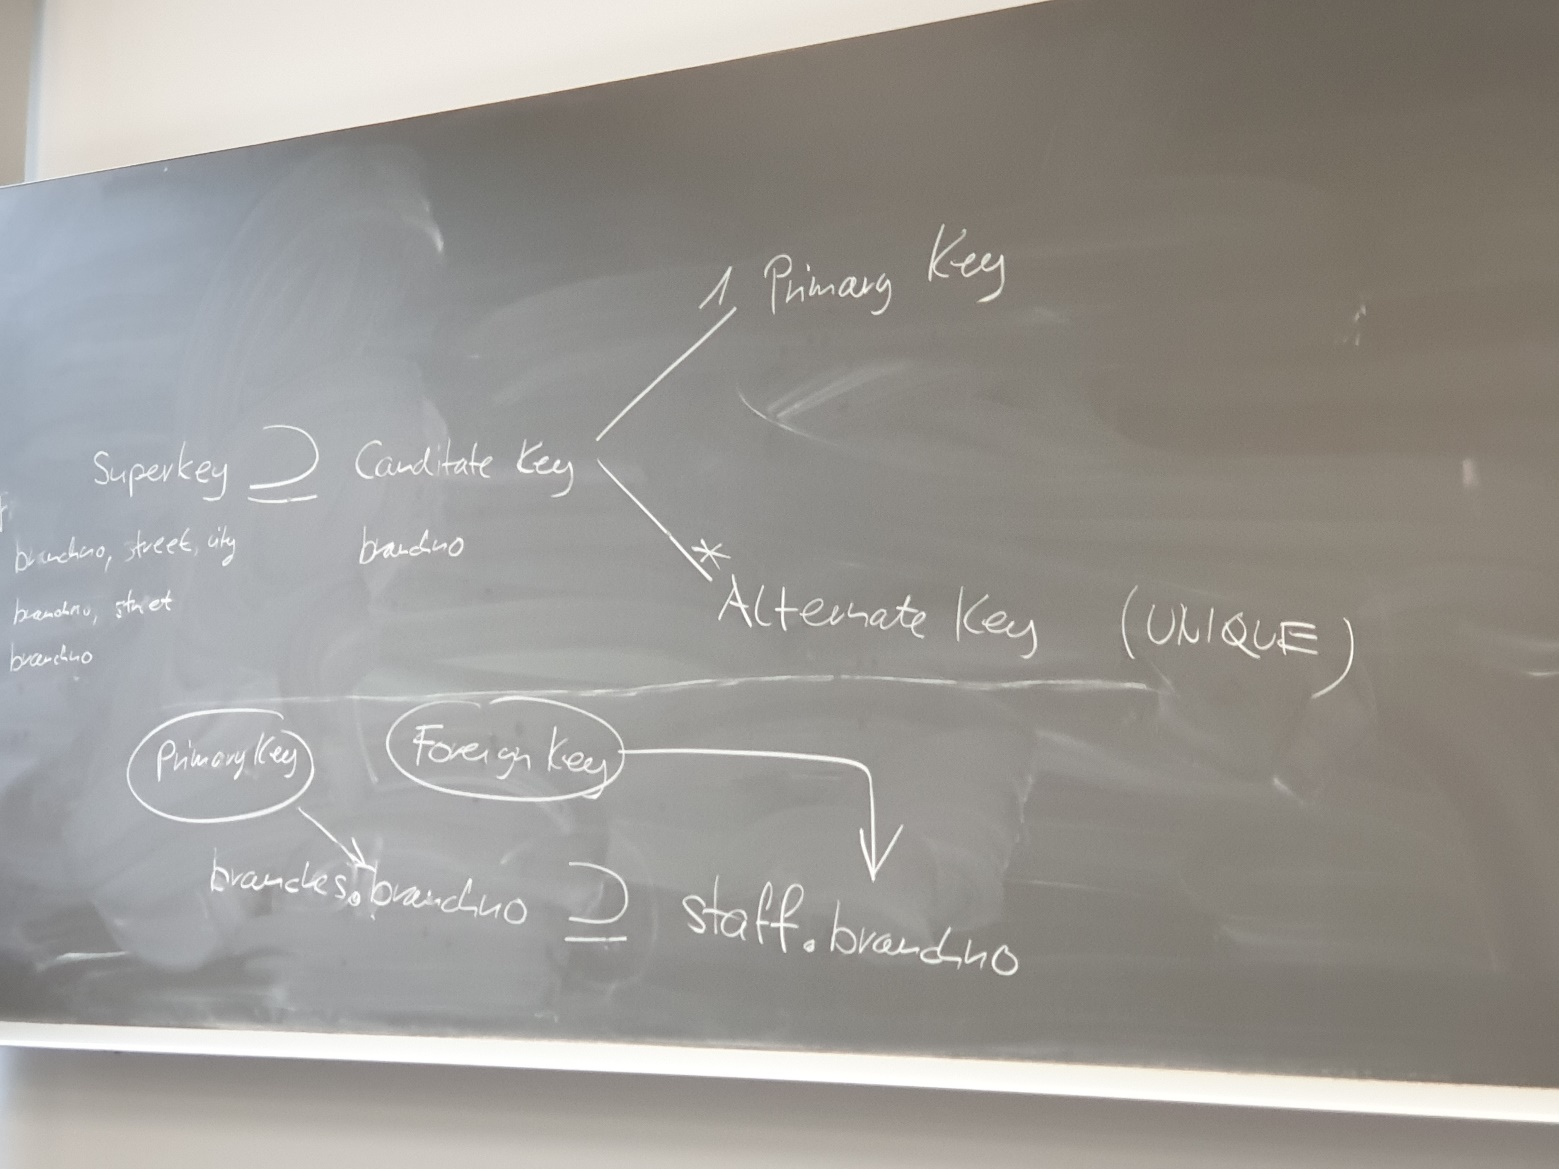 1 Primary Key
Superkey ⊇ Canditate Key
branchno, street, city
branchno
branchno, street
branchno
* Alternate Key (UNIQUE)
Primary Key
Foreign Key
branches.branchno ⊇ staff.branchno